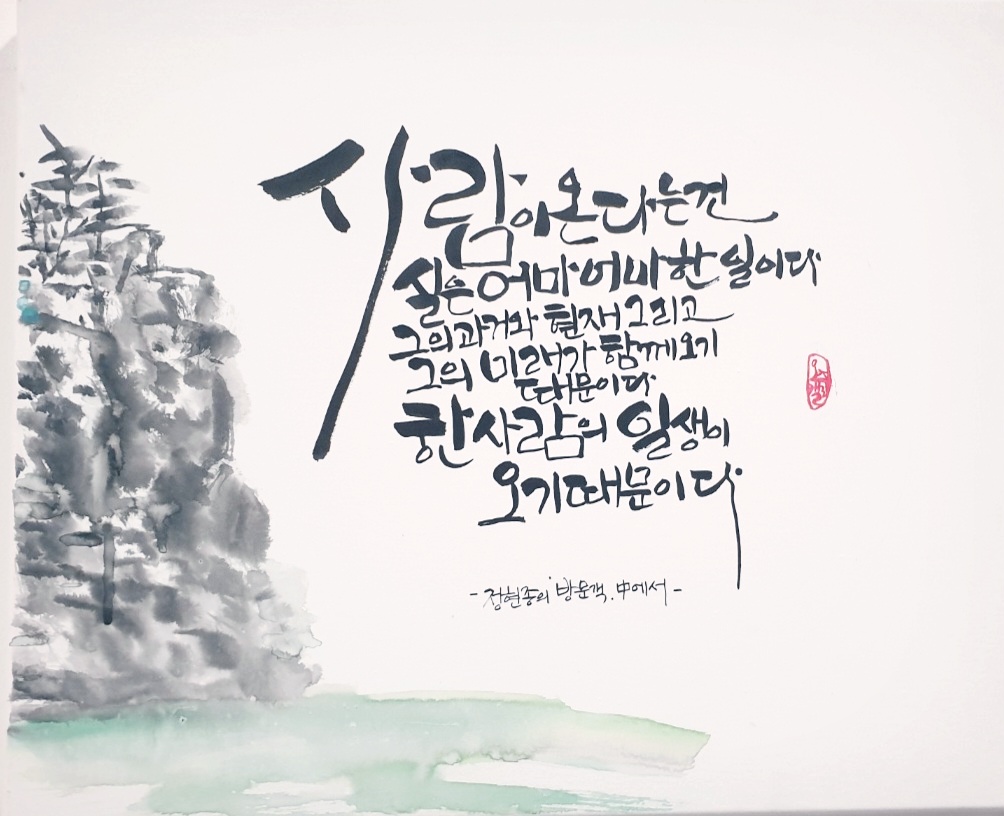 사람이 온다는건
실은 어마어마한 일이다
그의 과거와 현재 그리고
그의 미래가 함께 오기
때문이다
한사람의 일생이
오기때문이다
-정현종의 '방문객' 中에서-